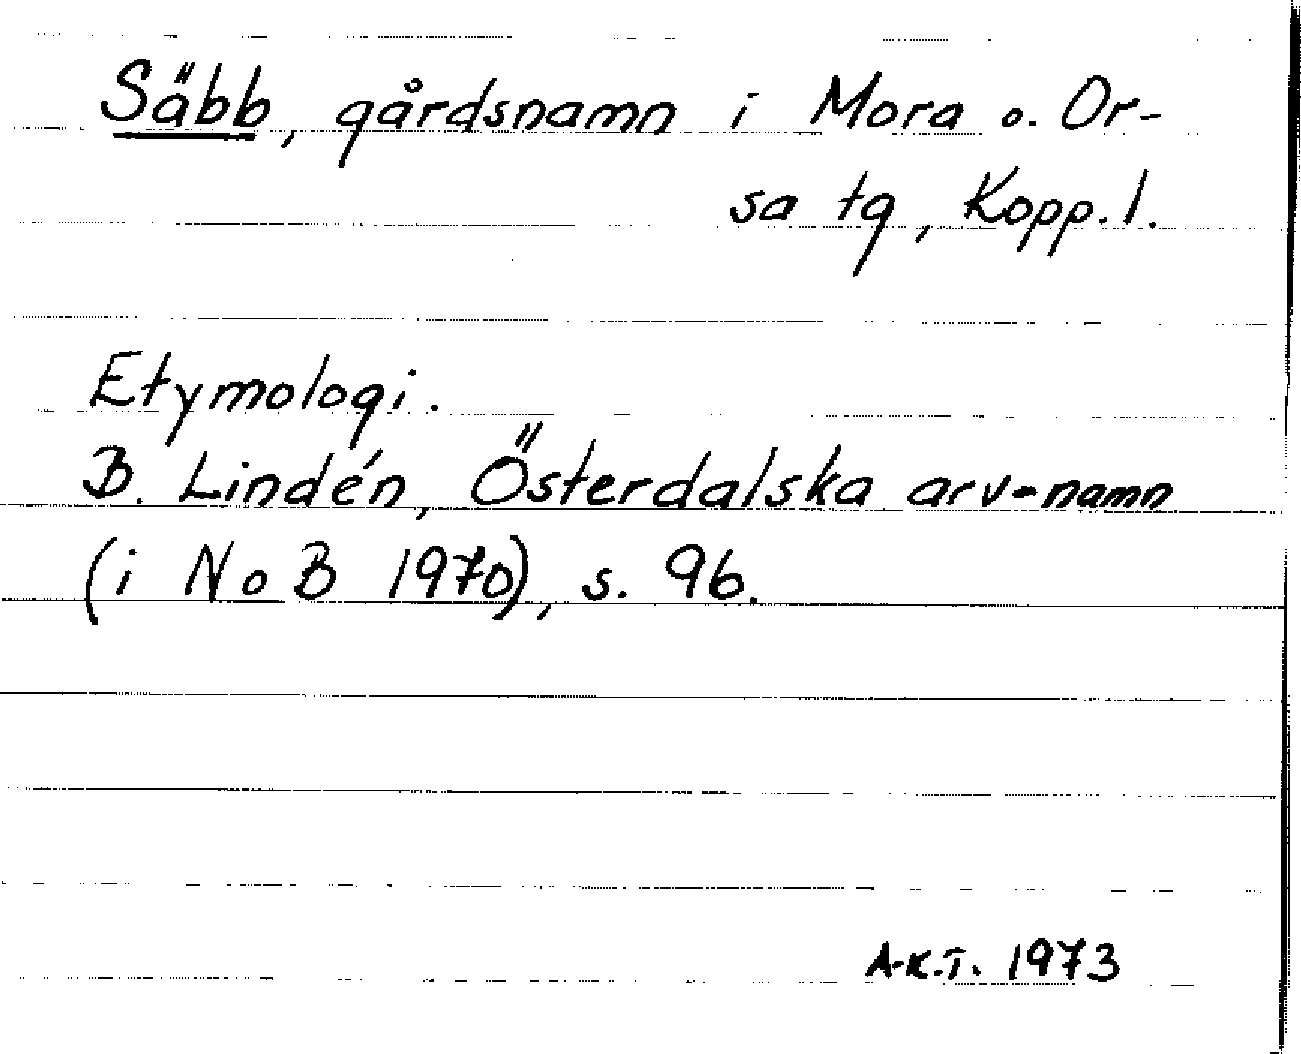 Säbb, gårdsnamn i Mora o. Or-
sa tg, Kopp. l.
Etymologi.
B. Lindén, Österdalska arv-namn
(i NoB 1970), s. 96.
A-K.T. 1973